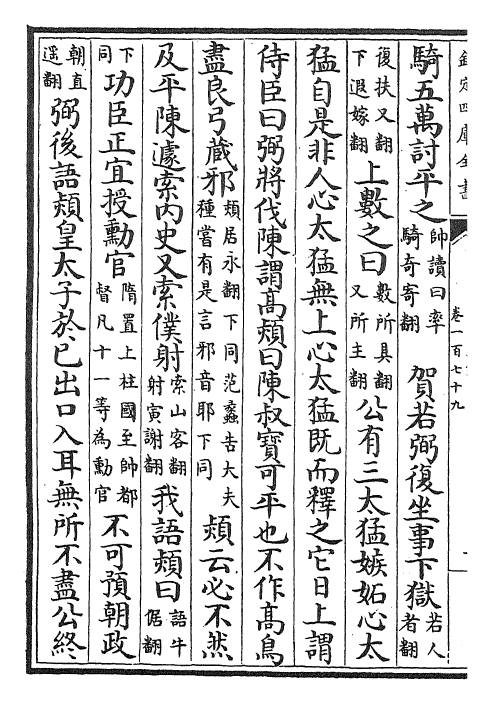 欽定四庫全書
卷一百七十九
騎五萬討平之帥讀曰率騎奇寄翻　賀若弼復坐事下獄若人者翻
復扶又翻下遐嫁翻上數之曰數所具翻又所主翻公有三太猛嫉妬心太
猛自是非人心太猛無上心太猛既而釋之它日上謂
侍臣曰弼將伐陳謂高熲曰陳叔寶可平也不作高鳥
盡良弓藏邪熲居永翻下同范蠡告大夫種嘗有是言邪音耶下同熲云必不然
及平陳遽索内史又索僕射索山客翻射寅謝翻我語熲曰語牛倨翻
下同功臣正宜授勳官隋置上柱國至帥都督凡十一等為勳官不可預朝政
朝直遥翻弼後語熲皇太子於已出口入耳無所不盡公終